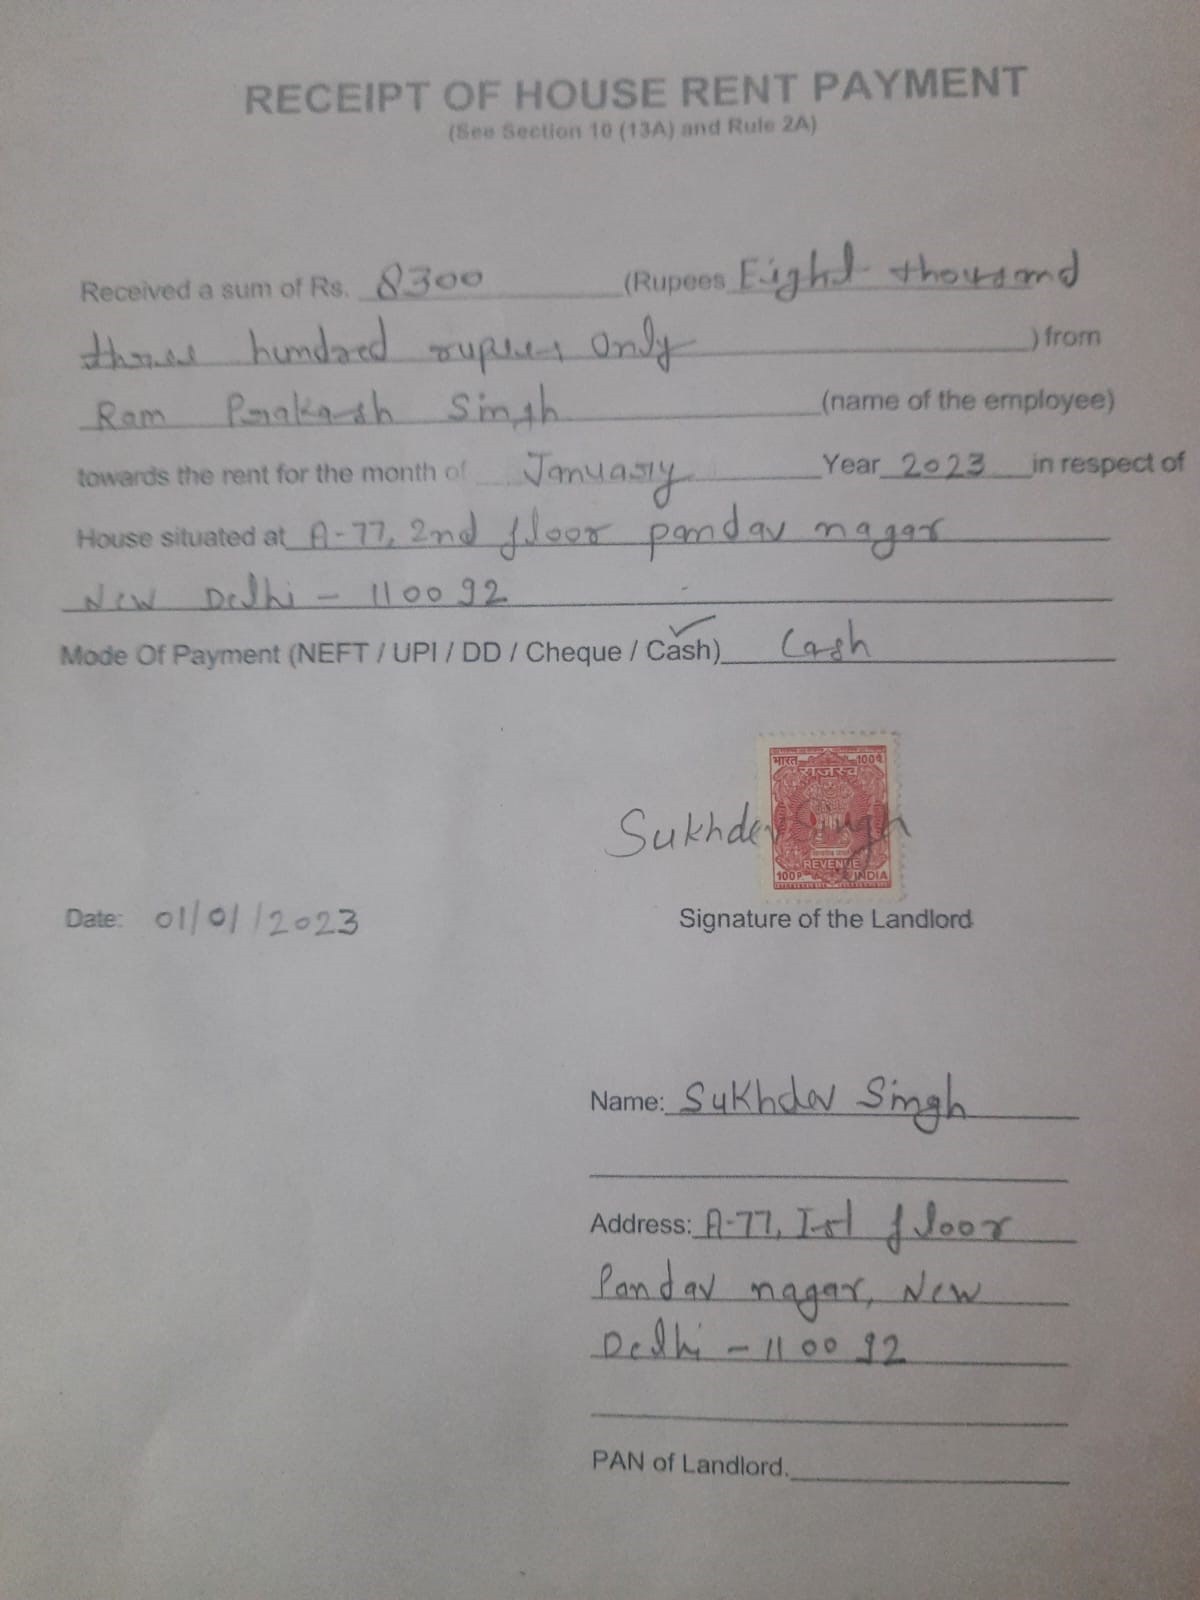 RECEIPT OF HOUSE RENT PAYMENT
(See Section 10 (13A) and Rule 2A)
Received a sum of Rs. 8300 (Rupees Eight thousand
three hundred rupees only ) from
Ram Prakash Singh (name of the employee)
towards the rent for the month of January Year 2023 in respect of
House situated at A-77, 2nd floor pandav nagar
New Delhi - 110092
Mode Of Payment (NEFT / UPI / DD / Cheque / Cash) Cash
भारत 100प.
राजस्व
Sukhdev Singh
REVENUE
100P. INDIA
Date: 01/01/2023 Signature of the Landlord
Name: Sukhdev Singh
Address: A-77, Ist floor
Pandav nagar, New
Delhi - 110092
PAN of Landlord.